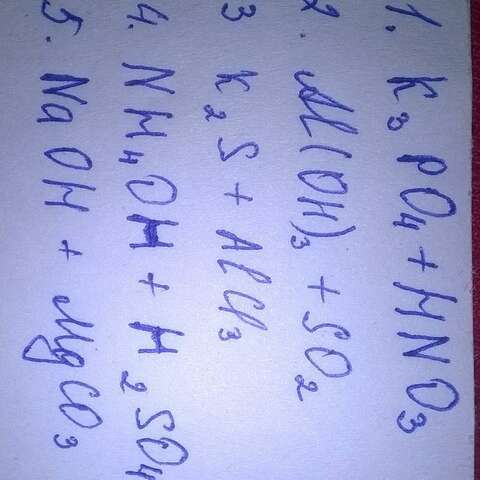 1. K₃PO₄ + HNO₃
2. Al(OH)₃ + SO₂
3 K₂S + AlCl₃
4. NH₄OH + H₂SO₄
5. NaOH + MgCO₃